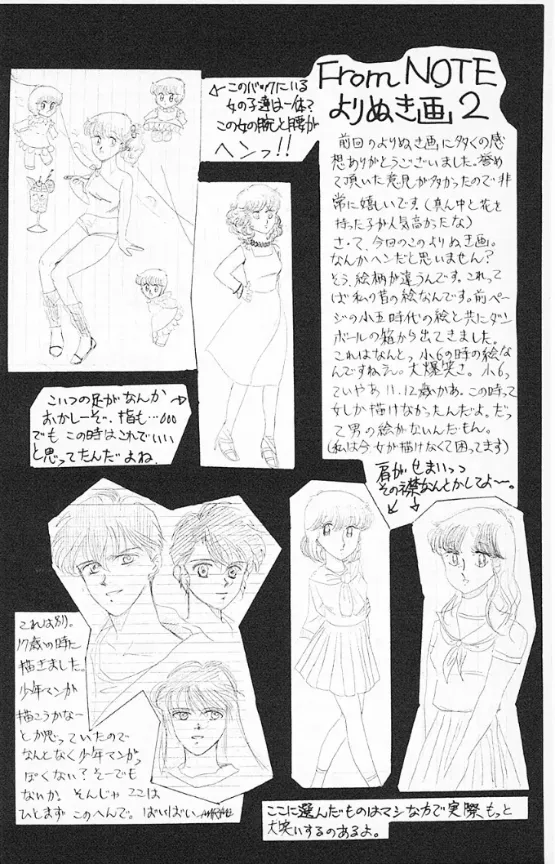 From NOTE
よりぬき画 2
前回のよりぬき画に多くの感
想ありがとうございました。誉め
て頂いた意見が多かったので非
常に嬉しいです。(真ん中と花を
持った子が人気高かったな)
さ・て、今日のこのよりぬき画。
なんかヘンだと思いません?
そう、絵柄が違うんです。これって
ば私の昔の絵なんです。前ペー
ジの小五時代の絵と共にダン
ボールの箱から出てきました。
これはなんとっ小6の時の絵な
んですねえ〜。大爆笑さ。小6っ
ていやあ11、12歳かあ。この時って
女しか描けなかったんだよ。だっ
て男の絵がないんだもん。
(私は今女が描けなくて困ってます)
このバックにいる
女の子達は一体?
この女の腕と腰が
ヘンっ!!
こいつの足がなんか
おかしーぞ。指も…
でもこの時はこれでいい
と思ってたんだよね。
肩がせまいっっ
その襟なんとかしてよ〜。
これは別。
17歳の時に
描きました。
少年マンガ
描こうかな〜
とか思っていたので
なんとなく少年マンガっ
ぽくない?そーでも
ないか。そんじゃここは
ひとまずこのへんで。ばいばい
ここに選んだものはマシな方で実際もっと
大笑いするのあるよ。